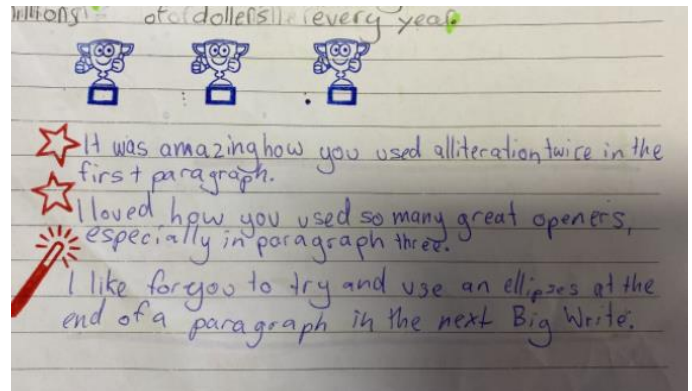 of dollers every year.
It was amazing how you used alliteration twice in the
first paragraph.
I loved how you used so many great openers,
especially in paragraph three.
I like for you to try and use an ellipses at the
end of a paragraph in the next Big Write.